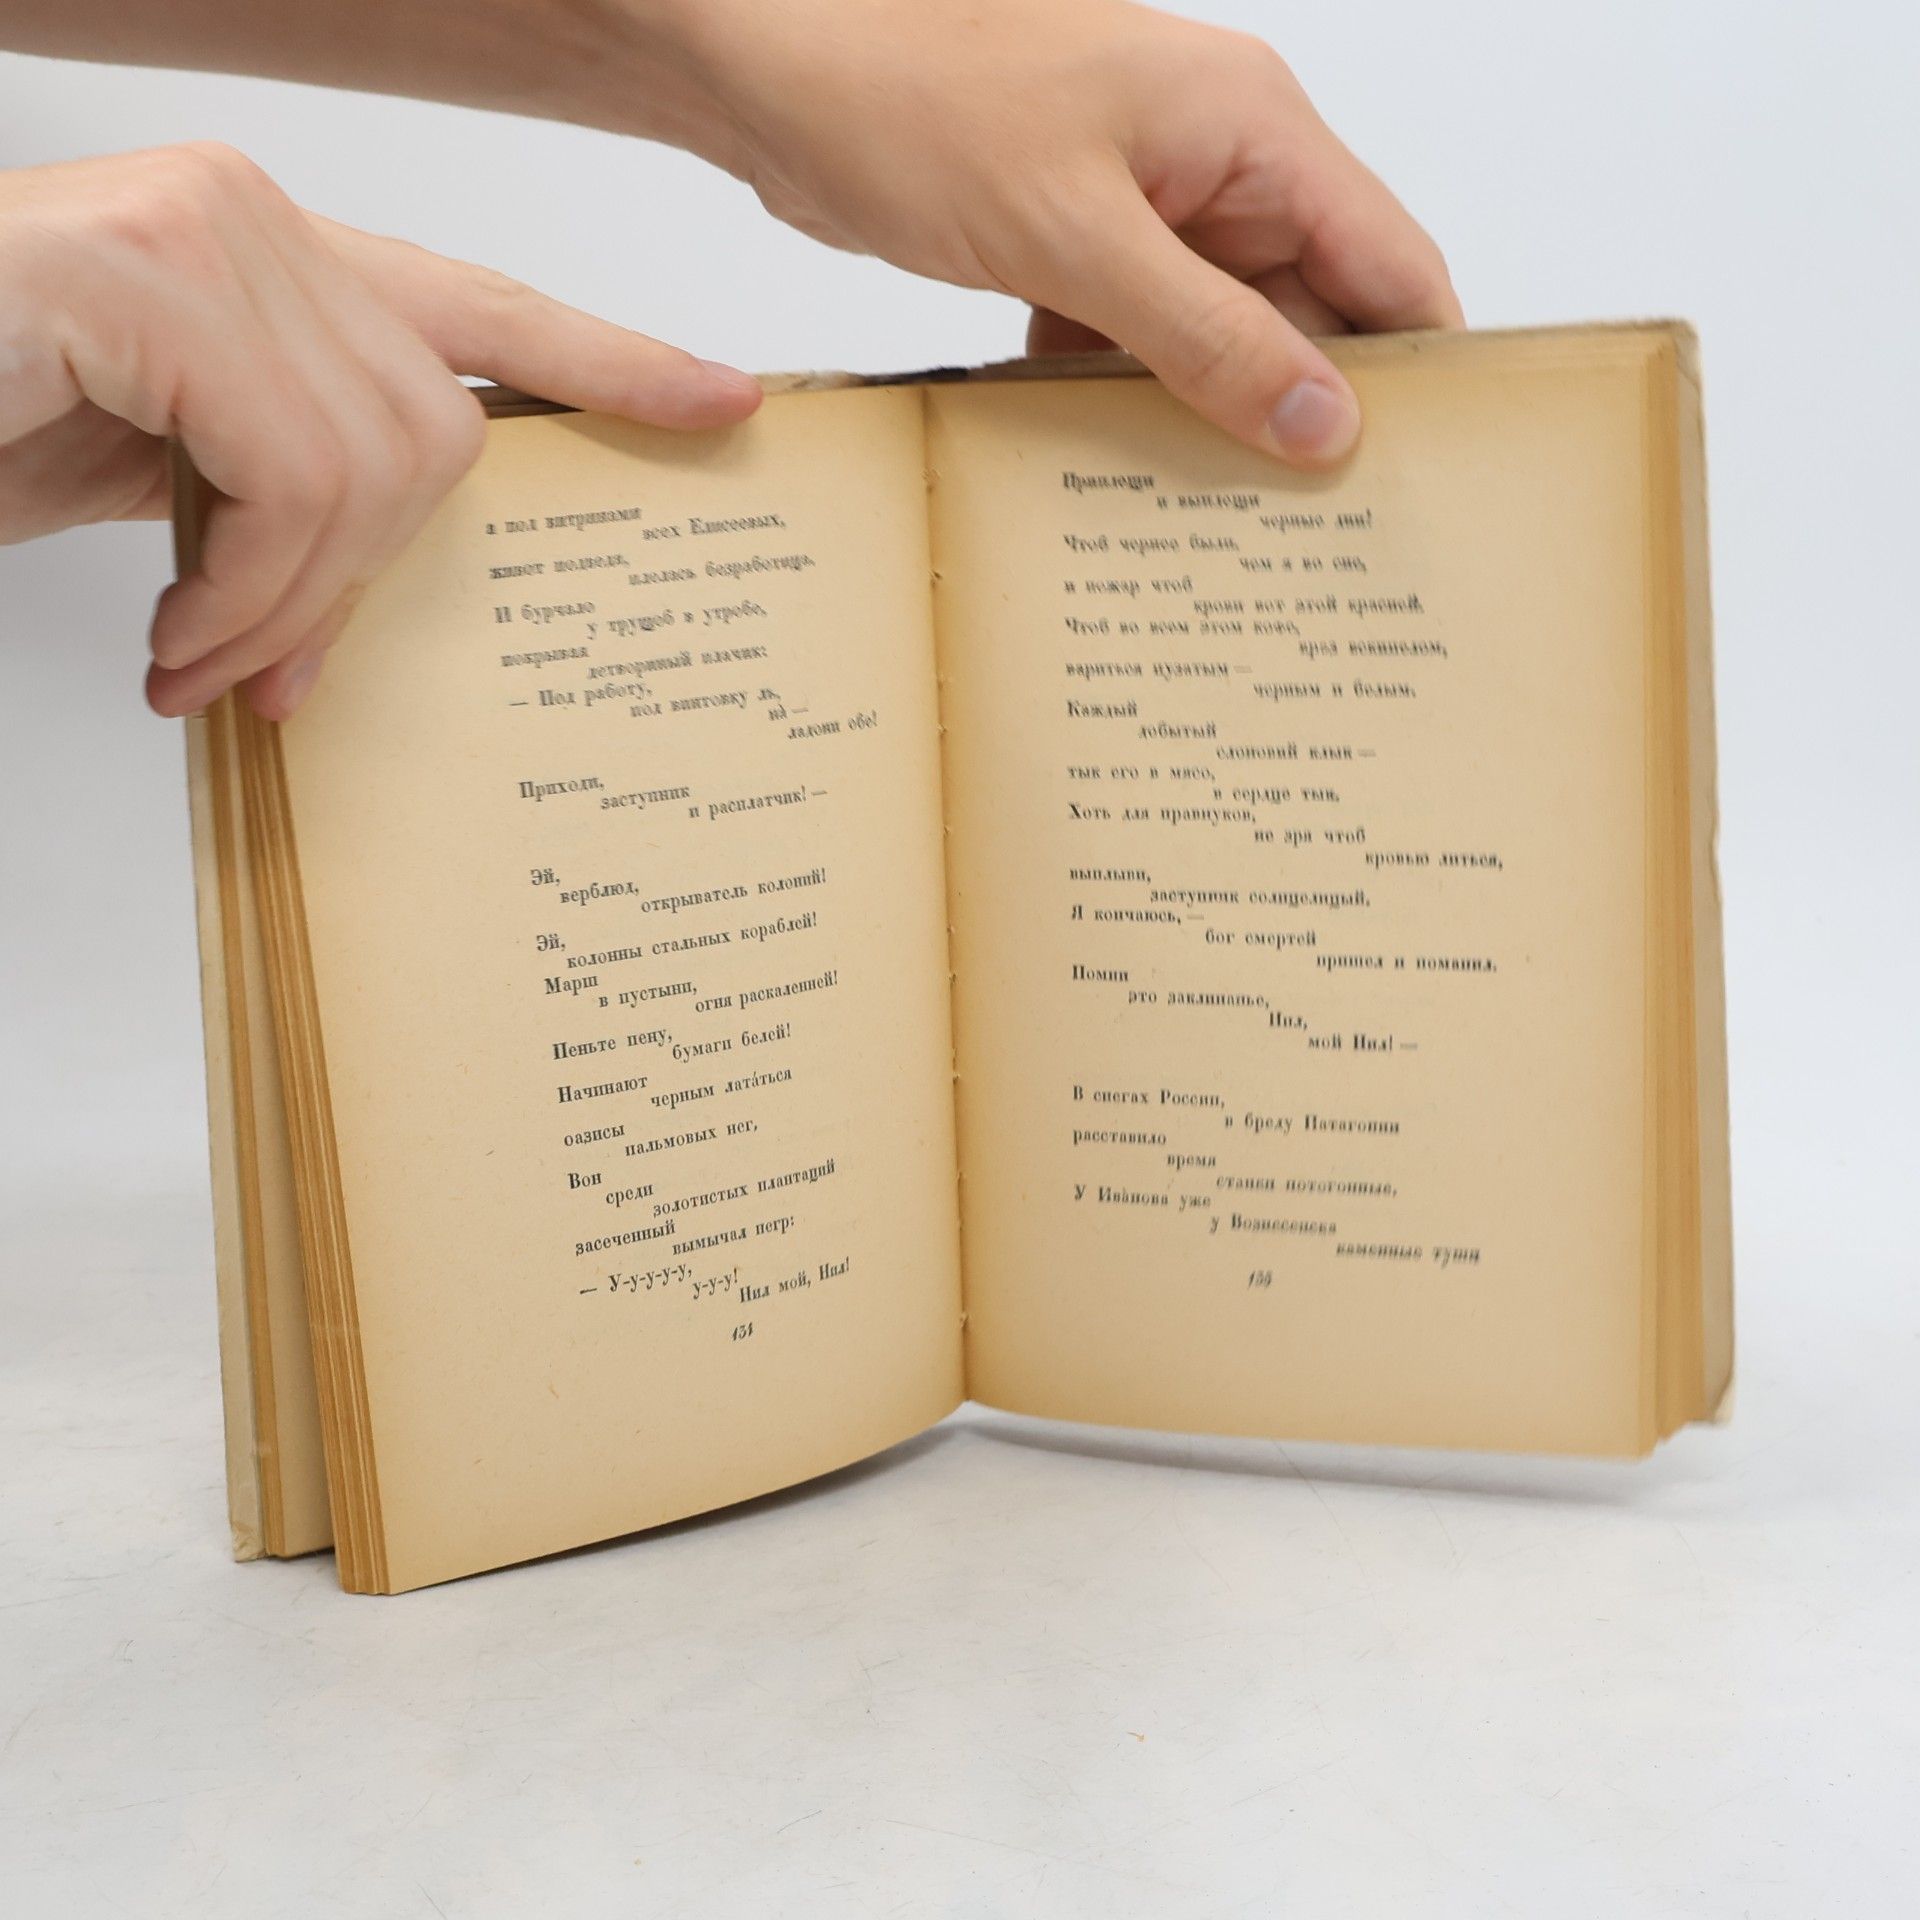 а под витринами
всех Елисеевых,
живот подведя,
плелась безработица.
И бурчало
у трущоб в утробе,
покрывая
детвориный плачик:
— Под работу,
под винтовку ль,
на̀ —
ладони обе!
Приходи,
заступник
и расплатчик! —
Эй,
верблюд,
открыватель колоний!
Эй,
колонны стальных кораблей!
Марш
в пустыни,
огня раскаленней!
Пеньте пену,
бумаги белей!
Начинают
черным лата́ться
оазисы
пальмовых нег,
Вон
среди
золотистых плантаций
засеченный
вымычал негр:
— У-у-у-у-у,
у-у-у!
Нил мой, Нил!
131
Приплещи
и выплещи
черные дни!
Чтоб чернее были,
чем я во сне,
и пожар чтоб
крови вот этой красней.
Чтоб во всем этом кофе,
враз вскипелом,
вариться пузатым —
черным и белым.
Каждый
добытый
слоновий клык —
тык его в мясо,
в сердце тык.
Хоть для правнуков,
не зря чтоб
кровью литься,
выплыви,
заступник солнцелицый.
Я кончаюсь, —
бог смертей
пришел и поманил.
Помни
это заклинанье,
Нил,
мой Нил! —
В снегах России,
в бреду Патагонии
расставило
время
станки потогонные.
У Ива̀нова уже
у Вознесенска
каменные туши